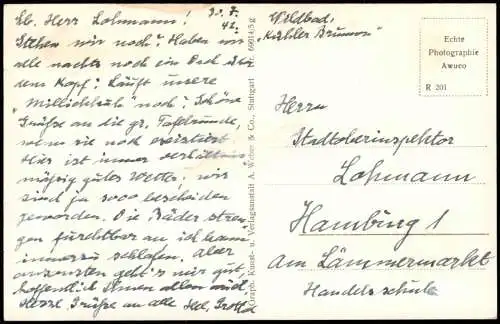 Lb. Herr Lohmann!
30. 7. 42.
Stehen wir noch? Haben wir
alle nachts noch ein Dach über
dem Kopf? Läuft unsere
"Millichkuh" noch? Schöne
Grüße an die gr. Tafelrunde,
wenn sie noch existiert.
Hier ist immer verhältnis-
mäßig gutes Wetter, wir
sind ja sooo bescheiden
geworden. Die Bäder stren-
gen furchtbar an ich kann
immerzu schlafen. Aber
ansonsten geht's mir gut,
hoffentlich Ihnen allen auch.
Herzl. Grüße an alle
Graph. Kunst- u. Verlagsanstalt A. Weber & Co., Stuttgart Nr. 66014/5 g
Wildbad,
"Kühler Brunnen"
Echte
Photographie
Awuco
R 201
Herrn
Stadtoberinspektor
Lohmann
Hamburg 1
Am Lämmermarkt
Handelsschule